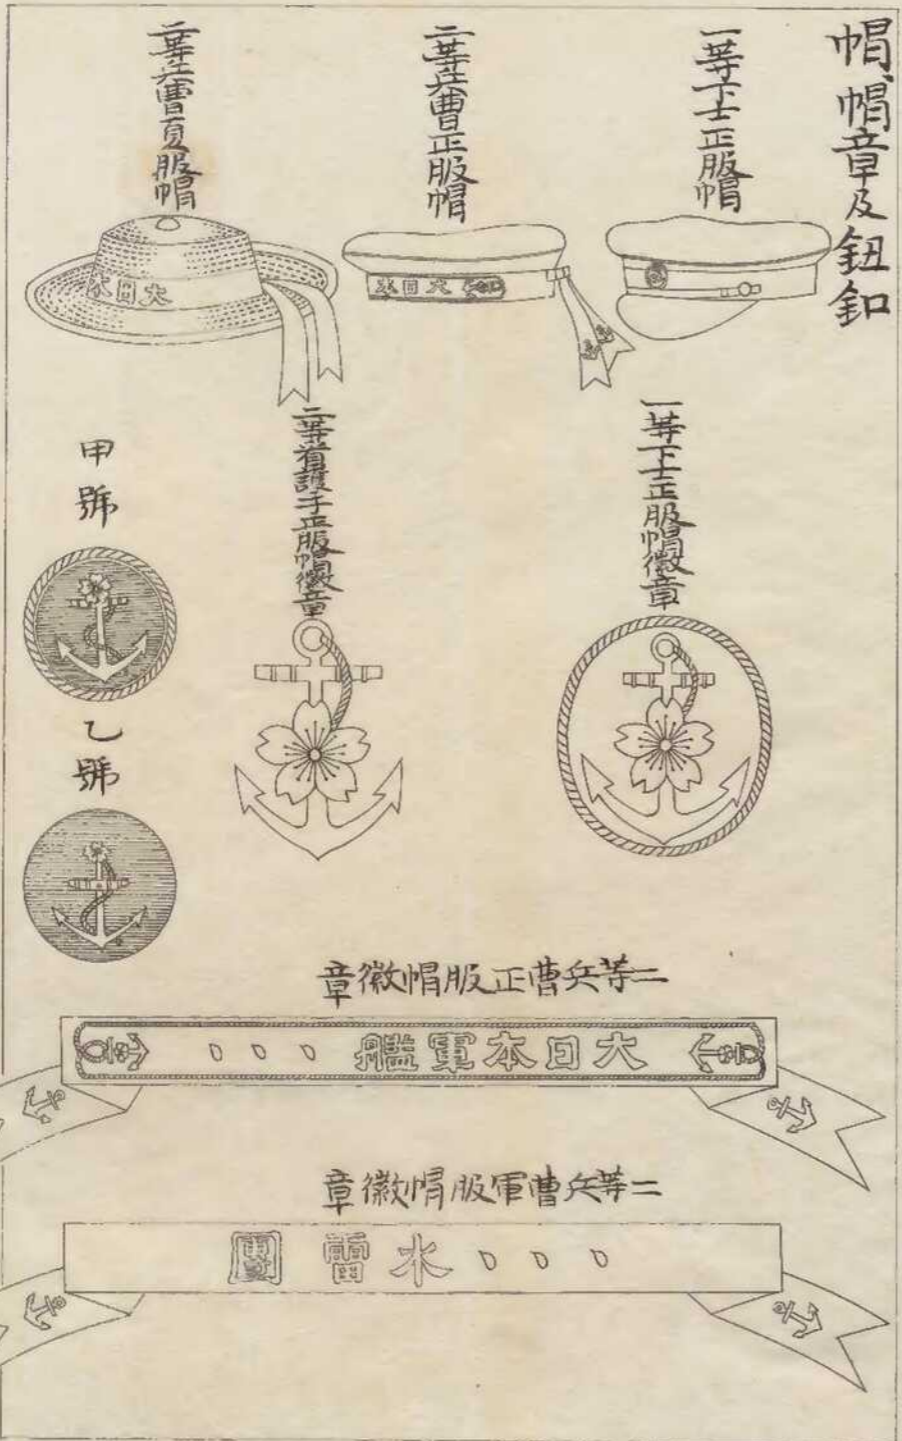 帽、帽章及鈕釦
一等下士正服帽
二等兵曹正服帽
二等兵曹夏服帽
大日本
大日本
一等下士正服帽徽章
二等看護手正服帽徽章
甲號
乙號
二等兵曹正服帽徽章
大日本軍艦、、、
二等兵曹軍服帽徽章
、、、水雷團